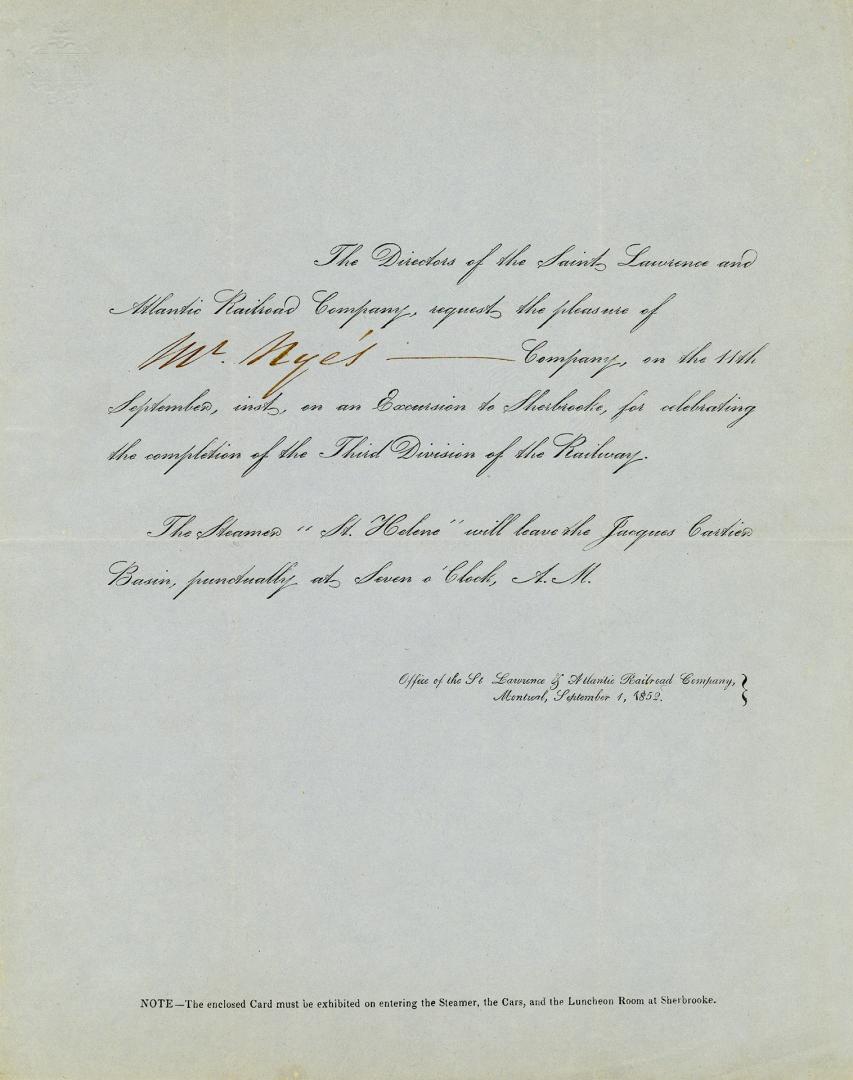 The Directors of the Saint Lawrence and
Atlantic Railroad Company, request the pleasure of
Mr. Nye's Company, on the 11th
September, inst, on an Excursion to Sherbrooke, for celebrating
the completion of the Third Division of the Railway.
The Steamer "St. Helene" will leave the Jacques Cartier
Basin, punctually at Seven o'Clock, A.M.
Office of the St Lawrence & Atlantic Railroad Company,
Montreal, September 1, 1852.
NOTE—The enclosed Card must be exhibited on entering the Steamer, the Cars, and the Luncheon Room at Sherbrooke.